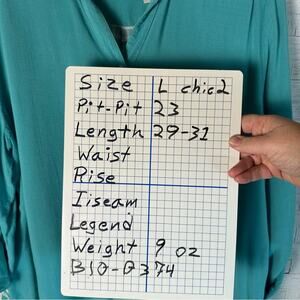 Size L chic2
Pit-Pit 23
Length 29-31
Waist
Rise
Iiseam
Legend
Weight 9 oz
B10-0374